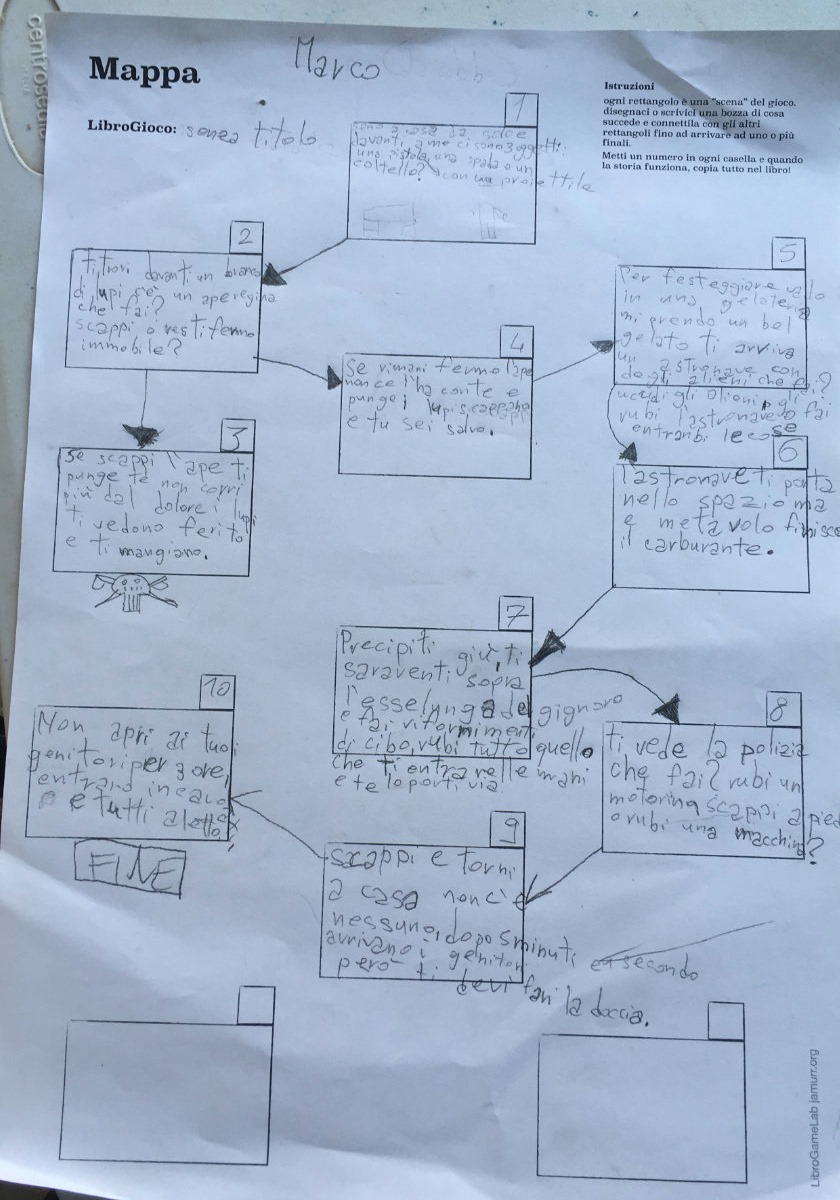 Mappa
Marco
LibroGioco: senza titolo
Istruzioni
ogni rettangolo è una "scena" del gioco.
disegnaci o scrivici una bozza di cosa
succede e connettila con gli altri
rettangoli fino ad arrivare ad uno o più
finali.
Metti un numero in ogni casella e quando
la storia funziona, copia tutto nel libro!
1
sono a casa da solo e
davanti a me ci sono 3 oggetti:
una pistola, una spada o un
coltello? con un proiettile
2
ti trovi davanti un branco
di lupi c'e' un aperegina
che fai?
scappi o resti fermo
immobile?
3
Se scappi l'ape ti
punge te non corri
più dal dolore i lupi
ti vedono ferito
e ti mangiano.
4
Se rimani fermo l'ape
non ce l'ha con te e
punge i lupi scappano
e tu sei salvo.
5
Per festeggiare vado
in una gelateria
mi prendo un bel
gelato ti arriva
un astronave con
degli alieni che fai?
uccidi gli alieni, gli
rubi l'astronave o fai
entranbi le cose
6
l'astronave ti porta
nello spazio ma
a metà volo finisce
il carburante.
7
Precipiti giù, ti
saraventi sopra
l'esselunga del gignoro
e fai rifornimenti
di cibo, rubi tutto quello
che ti entra nelle mani
e te lo porti via
8
ti vede la polizia
che fai? rubi un
motorino scappi a piedi
o rubi una macchina?
9
scappi e torni
a casa non c'è
nessuno, dopo 5 minuti
arrivano i genitori
però ti devi fari la doccia.
10
Non apri ai tuoi
genitori per 3 ore,
entrano in casa
e tutti a letto
FINE
LibroGameLab jamurr.org